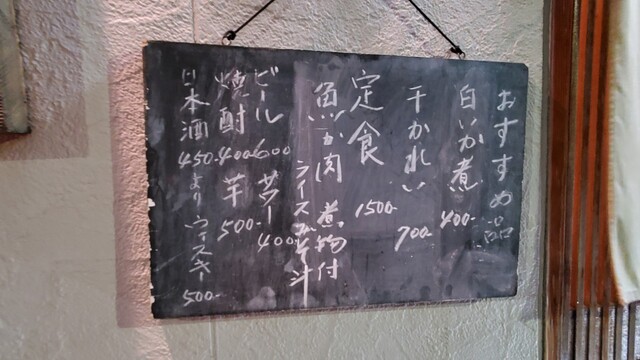 おすすめ品
白いか煮 400-
干かれい 700-
定食 1500-
魚か肉 煮物付
ライスみそ汁
ビール 600 サワー 400-
焼酎 400 芋 500-
日本酒 450-より ウィスキー 500-